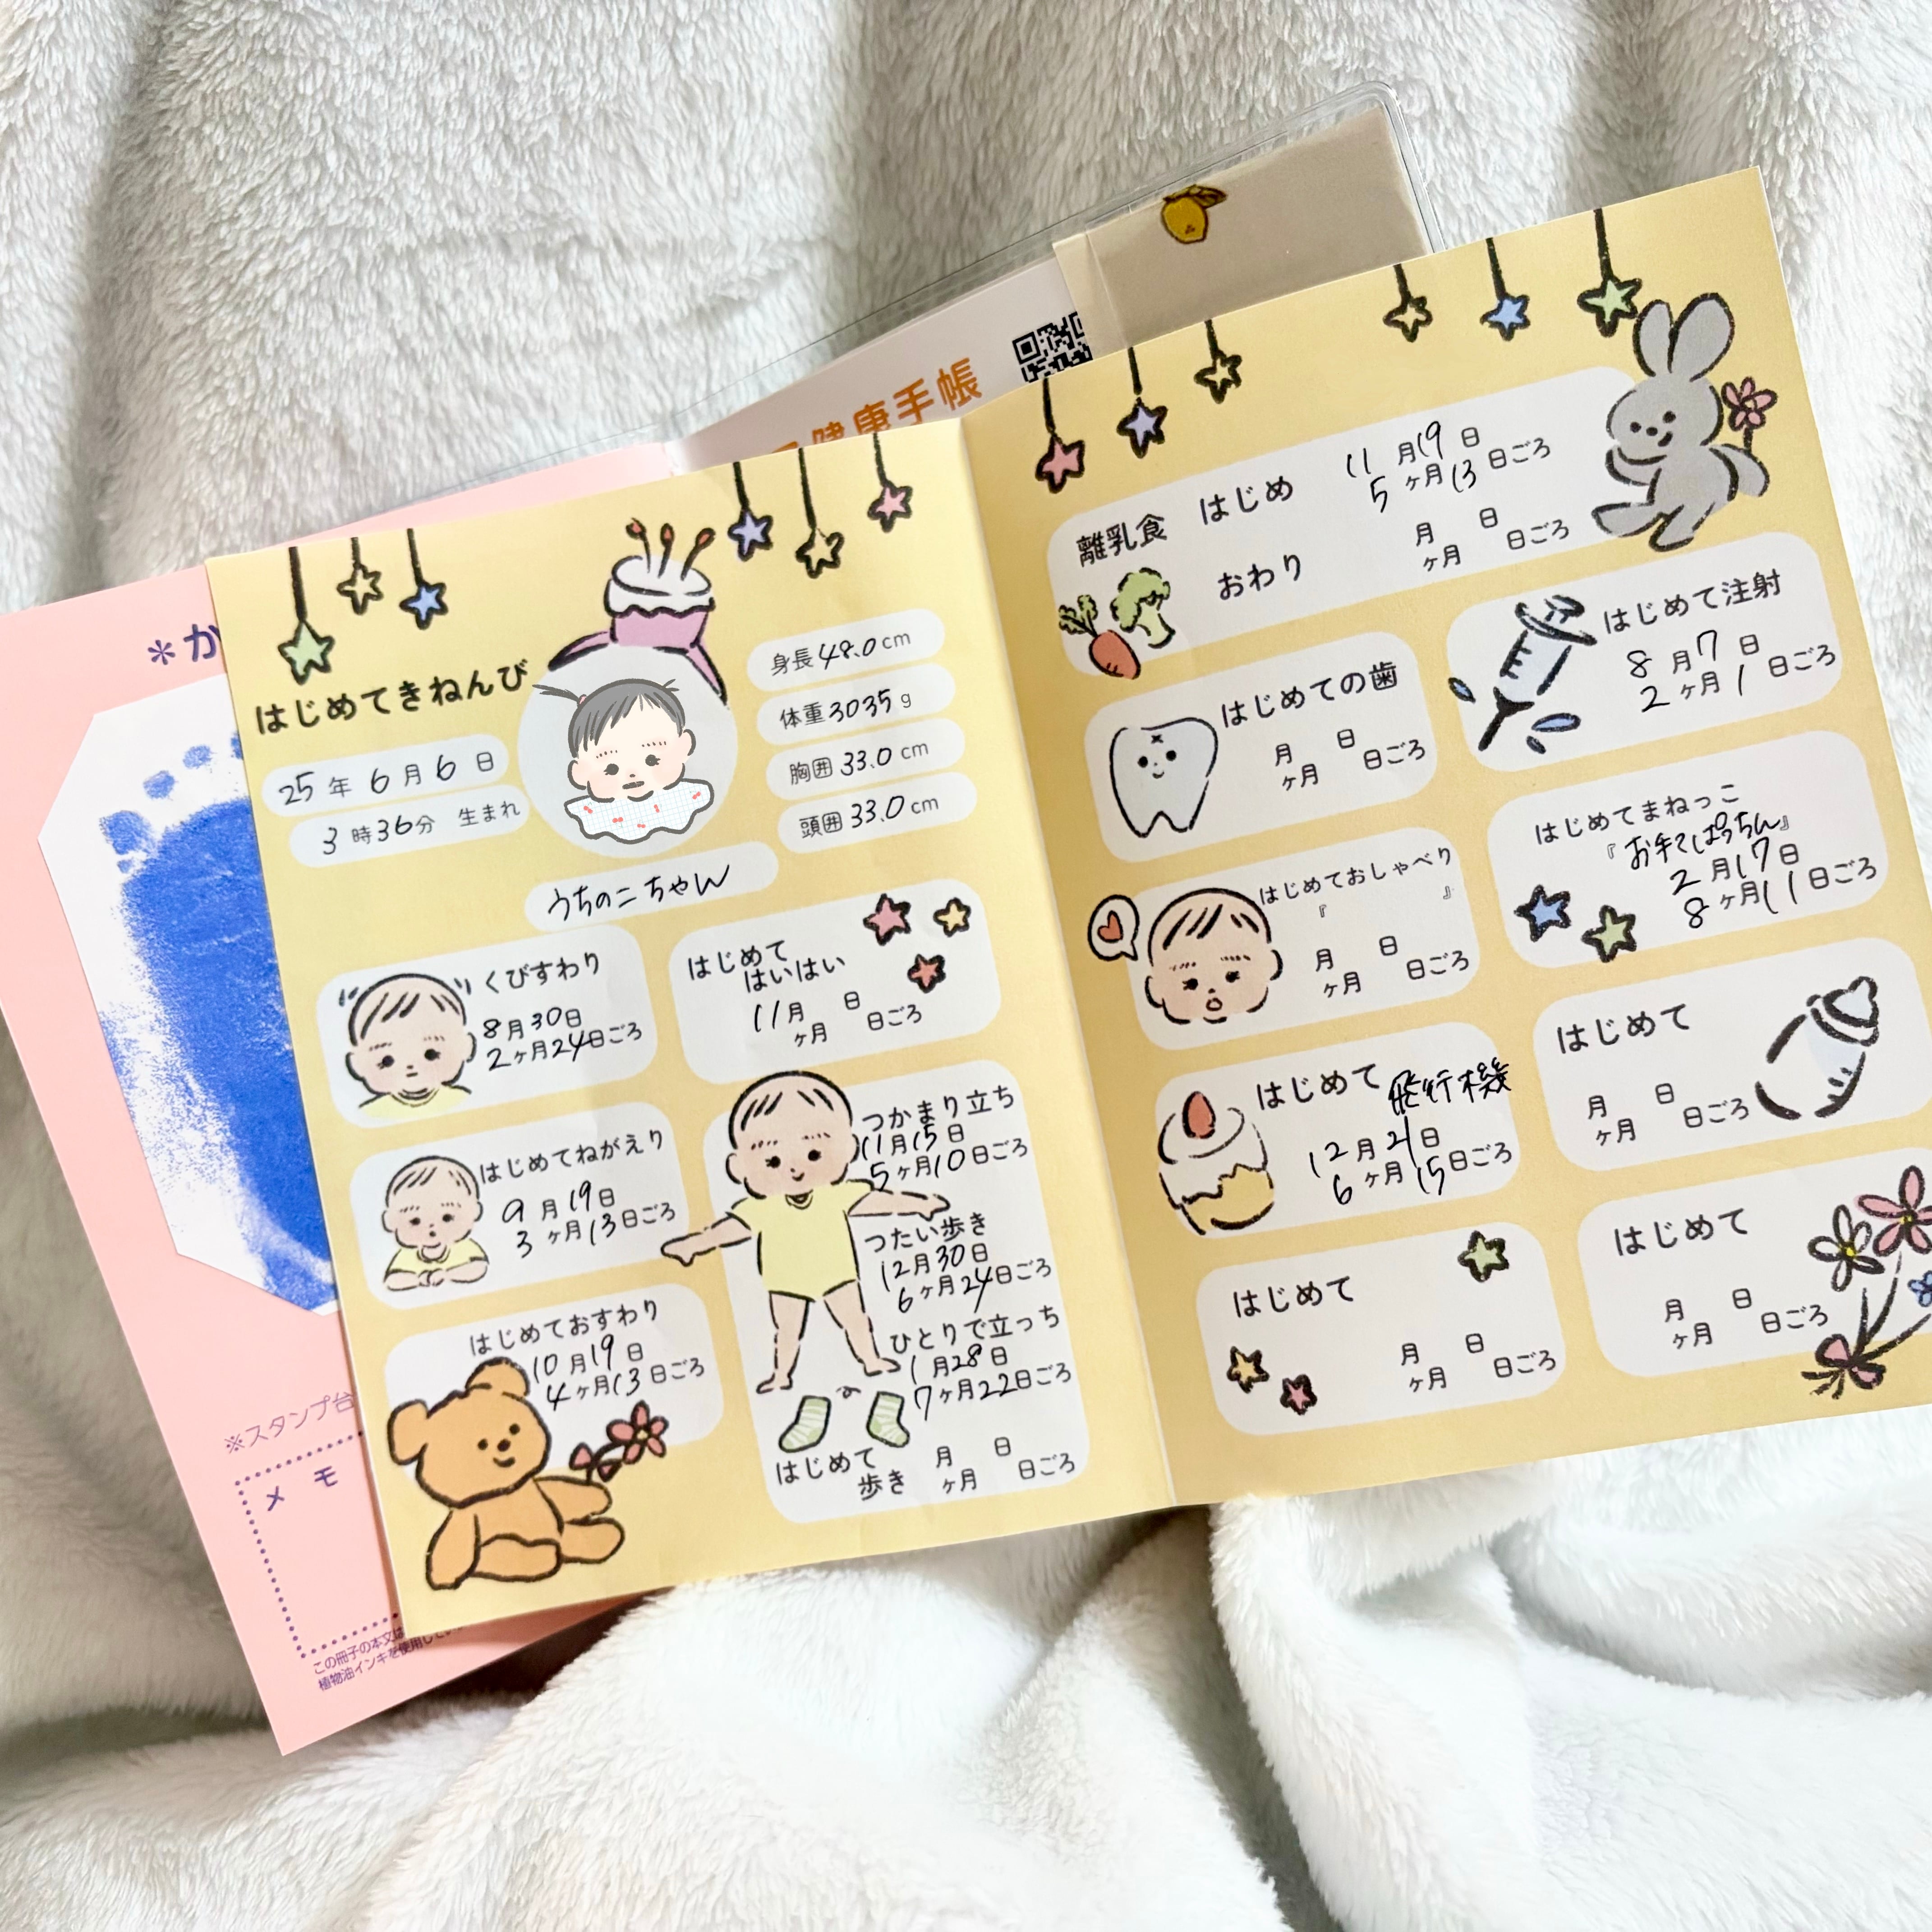 健康手帳
*か
はじめてきねんび
25年6月6日
3時36分 生まれ
身長48.0cm
体重3035g
胸囲33.0cm
頭囲33.0cm
うちのこちゃん
くびすわり
8月30日
2ヶ月24日ごろ
はじめて
はいはい
11月 日
ヶ月 日ごろ
はじめてねがえり
9月19日
3ヶ月13日ごろ
はじめておすわり
10月19日
4ヶ月13日ごろ
つかまり立ち
11月15日
5ヶ月10日ごろ
つたい歩き
12月30日
6ヶ月24日ごろ
ひとりで立っち
1月28日
7ヶ月22日ごろ
はじめて
歩き
月 日
ヶ月 日ごろ
離乳食
はじめ
11月19日
5ヶ月13日ごろ
おわり
月 日
ヶ月 日ごろ
はじめての歯
月 日
ヶ月 日ごろ
はじめて注射
8月7日
2ヶ月1日ごろ
はじめておしゃべり
『 』
月 日
ヶ月 日ごろ
はじめてまねっこ
『お手てぱっちん』
2月17日
8ヶ月11日ごろ
はじめて飛行機
12月21日
6ヶ月15日ごろ
はじめて
月 日
ヶ月 日ごろ
はじめて
月 日
ヶ月 日ごろ
はじめて
月 日
ヶ月 日ごろ
※スタンプ台
メモ
この冊子の本文は
植物油インキを使用してい